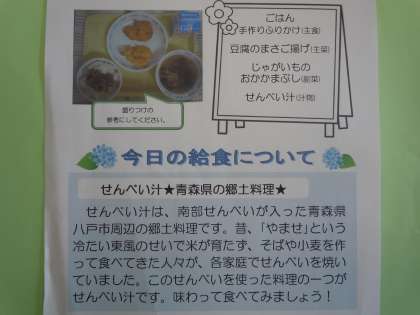 ごはん
手作りふりかけ(主食)
豆腐のまさご揚げ(主菜)
じゃがいもの
おかかまぶし(副菜)
せんべい汁(汁物)
盛りつけの
参考にしてください。
今日の給食について
せんべい汁★青森県の郷土料理★
せんべい汁は、南部せんべいが入った青森県
八戸市周辺の郷土料理です。昔、「やませ」という
冷たい東風のせいで米が育たず、そばや小麦を作
って食べてきた人々が、各家庭でせんべいを焼い
ていました。このせんべいを使った料理の一つが
せんべい汁です。味わって食べてみましょう！